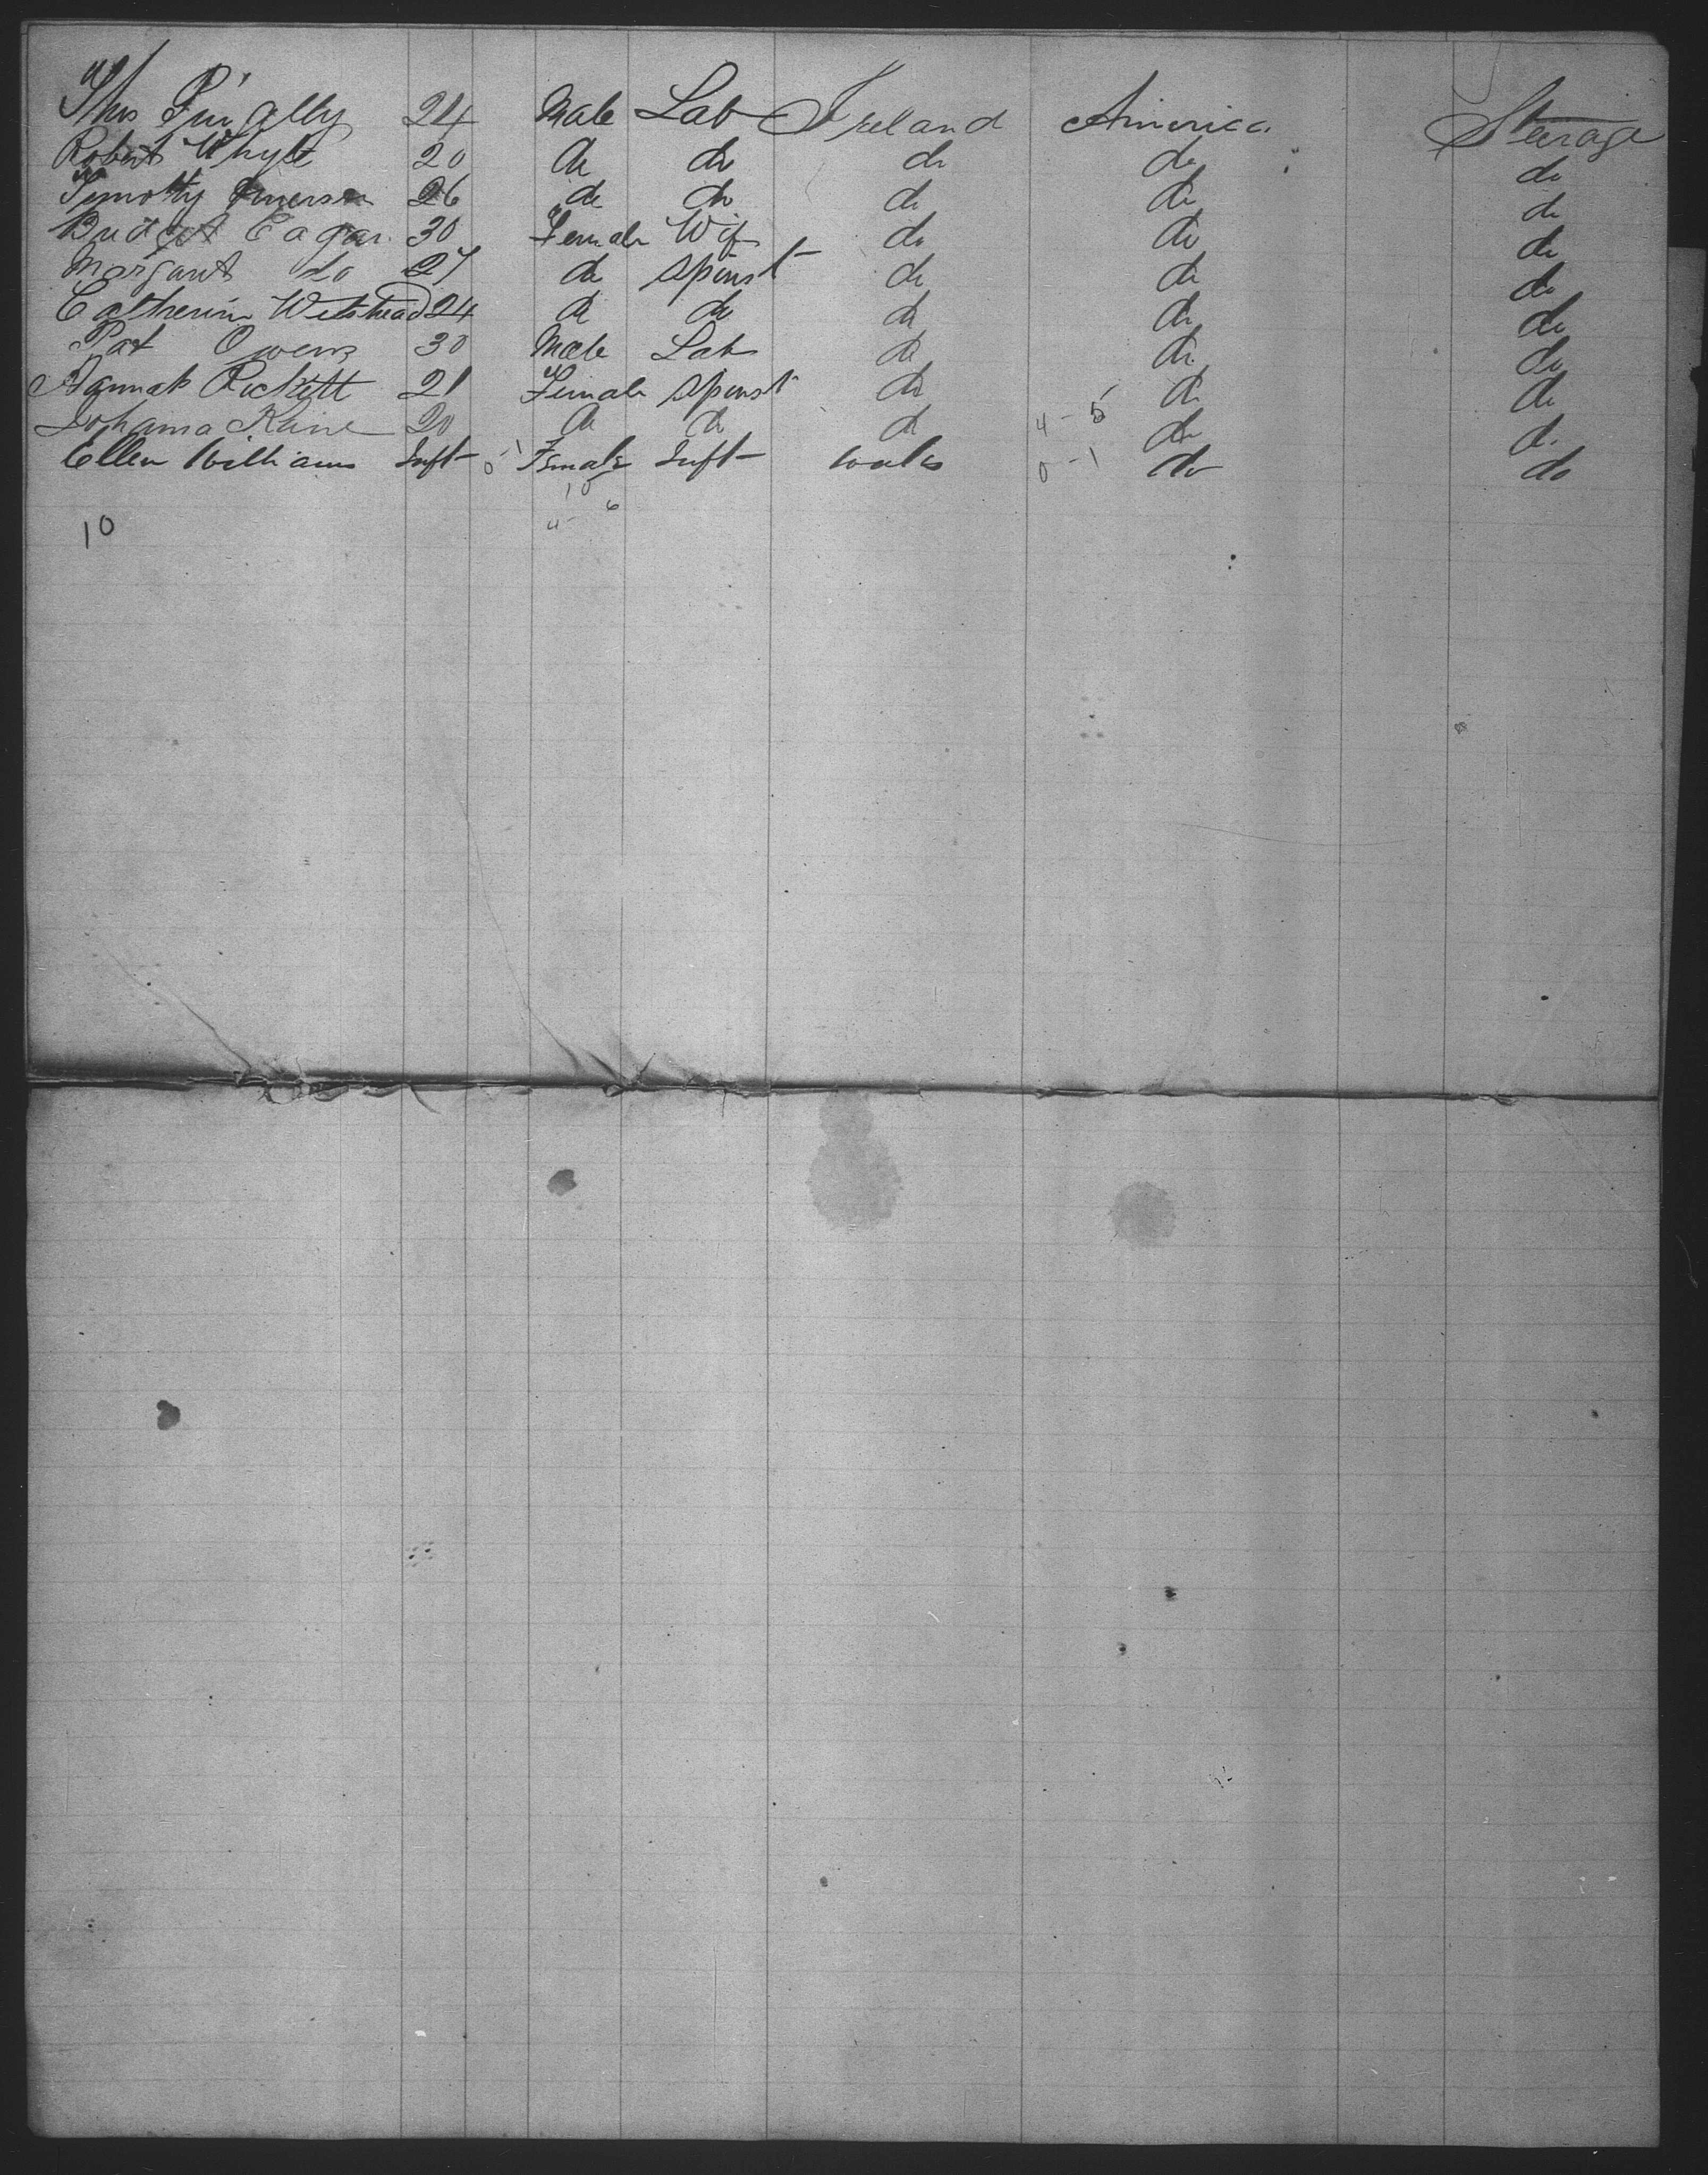 Thos Fingally 24 Male Lab Ireland America Steerage
Robert Whyte 20 do do do do do
Timothy Emerson 26 do do do do do
Bridget Eagan 30 Female Wife do do do
Margaret do 27 do Spinst do do do
Catherine Wetstead 24 do do do do do
Pat Owens 30 Male Lab do do do
Hannah Rickett 21 Female Spinst do do do
Johanna Kline 20 do do do 4-5 do do
Ellen Williams Inft Female Inft Wales 0-1 do do
10
4 6
10